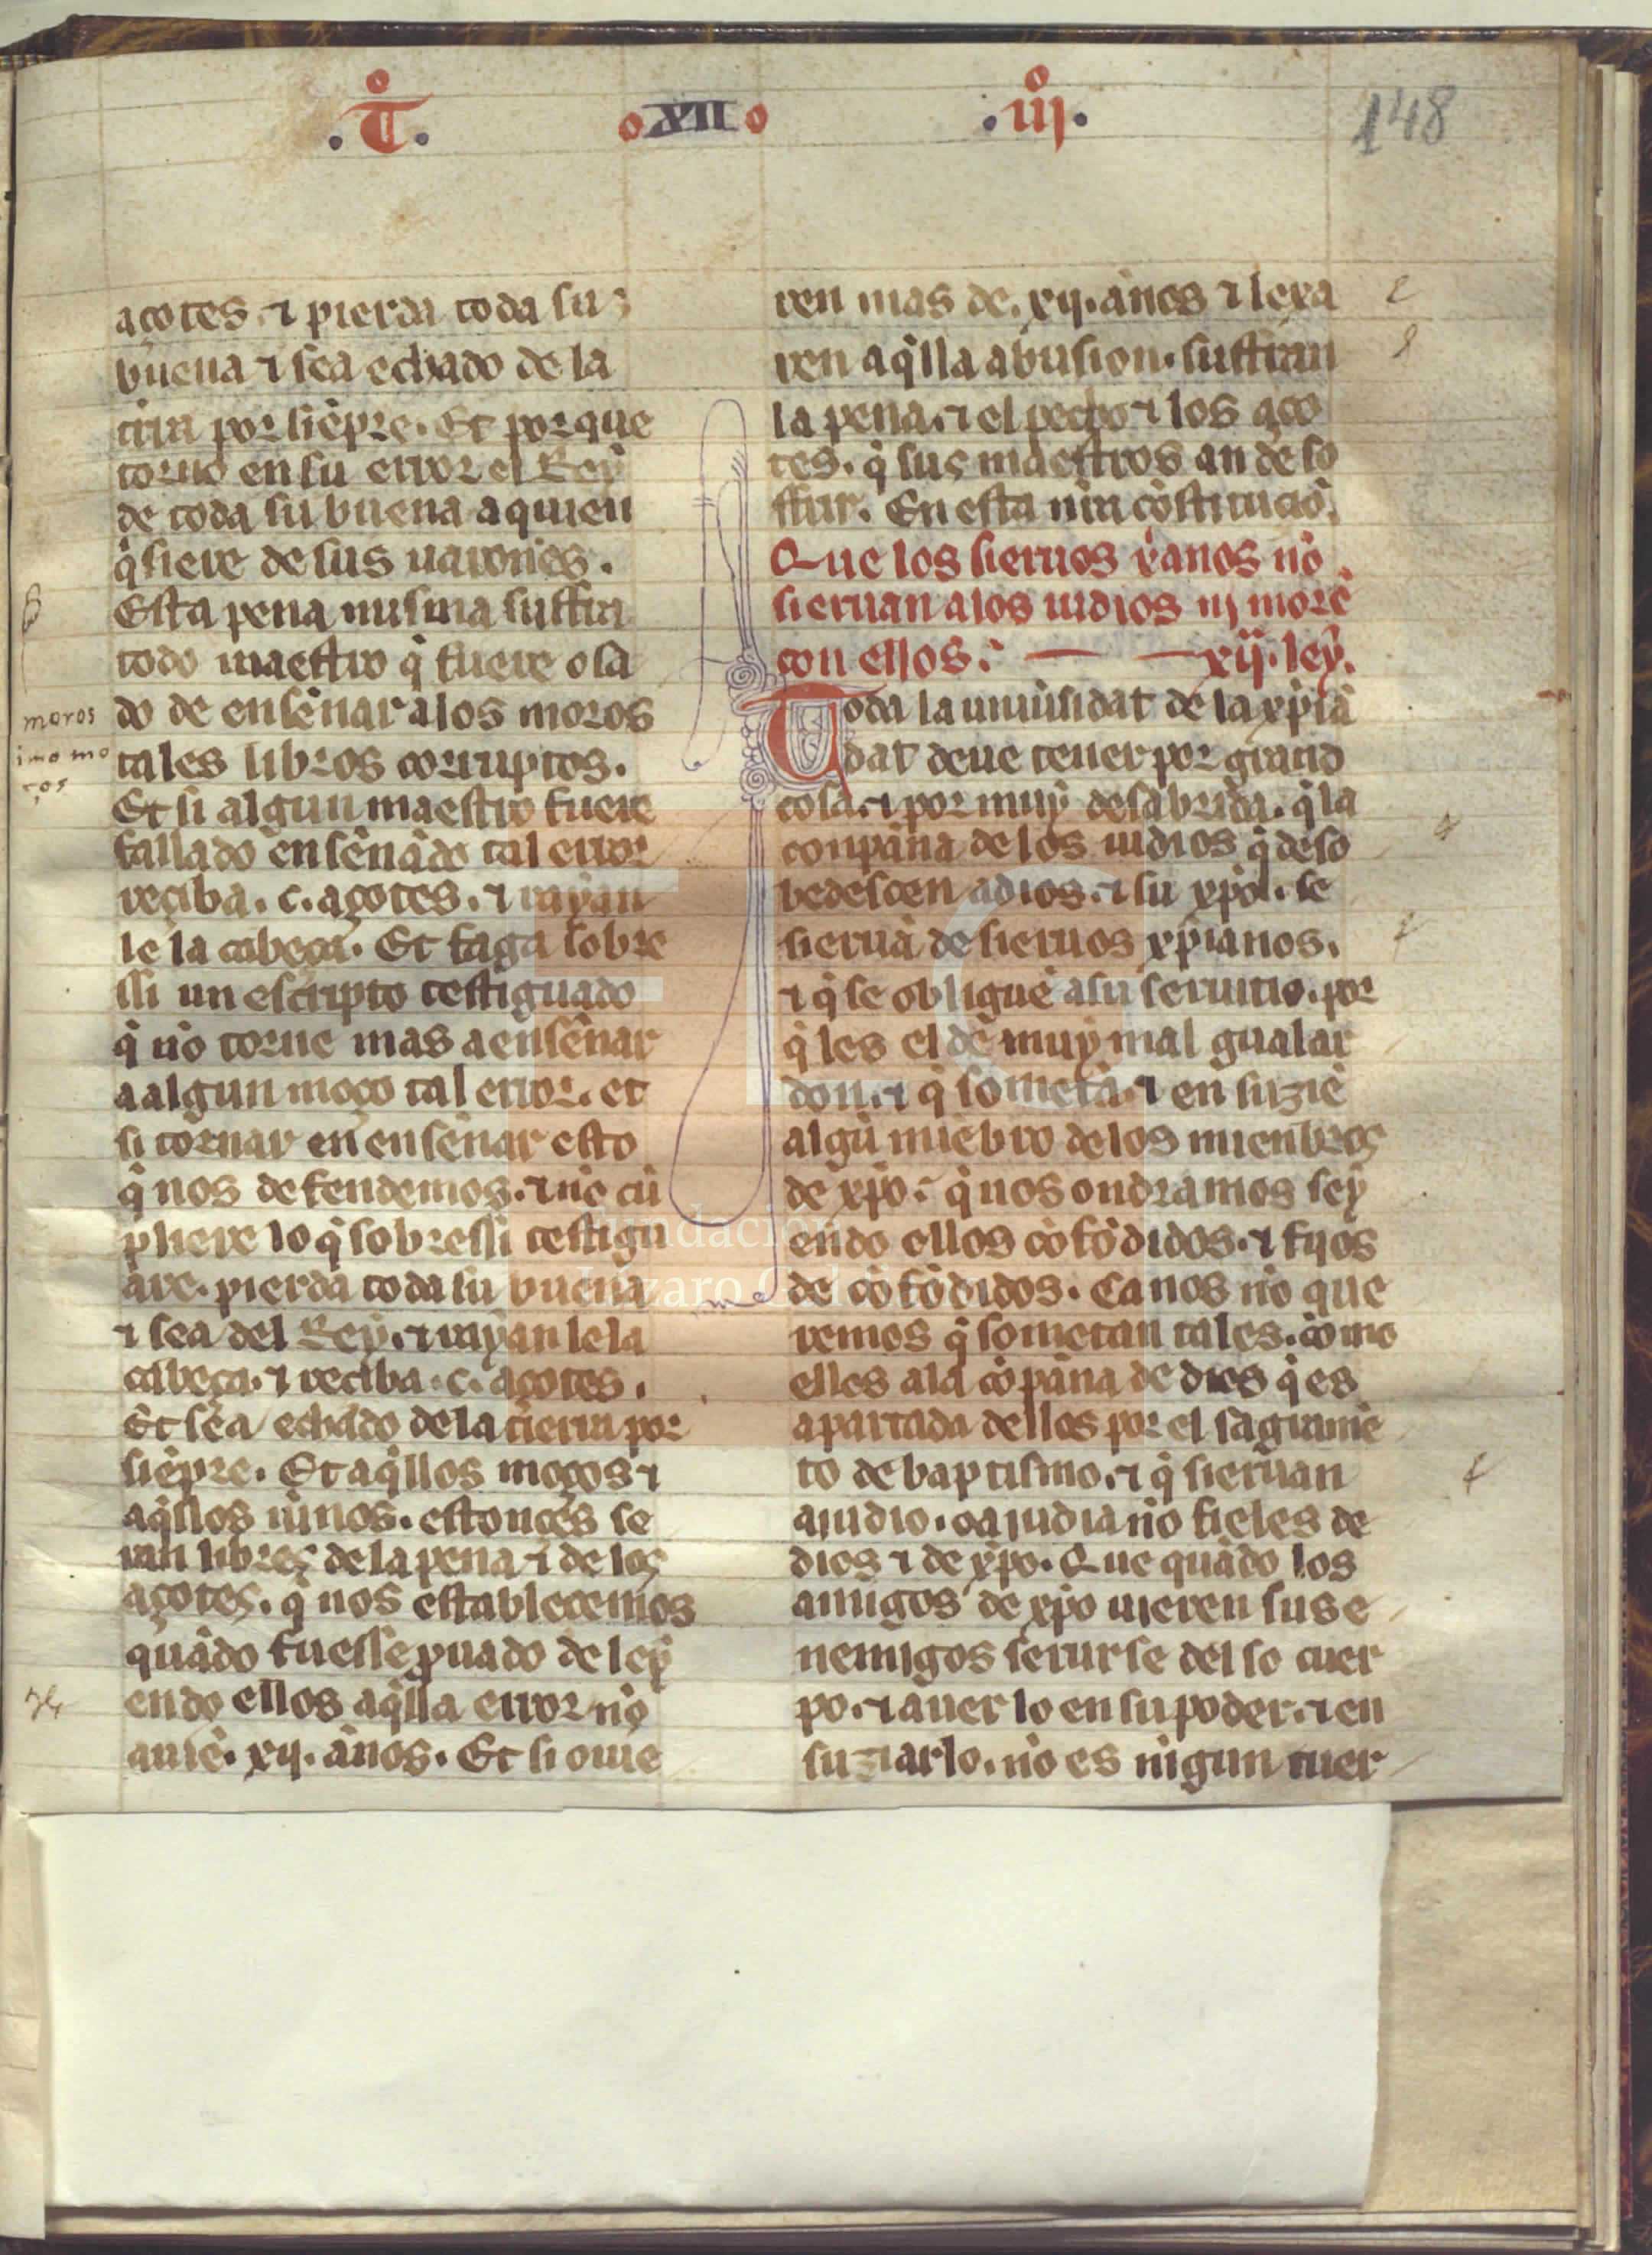 .T̊.
XII
.iij̊.
148
açotes. ⁊ pierda toda su
buena ⁊ sea echado de la
tr̃ra por siẽpre. Et porque
torno en su error el Rey
de toda su buena a quien
q̃siere de sus uarones.
Esta pena misma suffra
todo maestro q̃ fuere osa
do de enseñar alos moros
tales libros corruptos.
Et si algun maestro fuere
fallado enseñãdo tal error
reciba. c. açotes. ⁊ rayan
le la cabeça. Et faga sobre
ssi un escripto testiguado
q̃ nõ torne mas a enseñar
a algun moço tal error. et
si tornar en enseñar esto
q̃ nos defendemos. ⁊ nõ cũ
pliere lo q̃ sobressi testigu
are. pierda toda su buena
⁊ sea del Rey. ⁊ rayan le la
cabeça. ⁊ reciba. c. açotes.
Et sea echado de la tierra por
siẽpre. Et aq̃llos moços ⁊
aq̃llos niños. estonçes se
ran libres de la pena ⁊ de los
açotes. q̃ nos establecemos
quãdo fuesse prouado de ley
endo ellos aq̃lla error nõ
auiẽ. xij. años. Et si ouie
moros
imo mo
ços
ren mas de. xij. años ⁊ lexa
ren aq̃lla abusion. suffran
la pena. ⁊ el pecho ⁊ los aço
tes. q̃ sus maestros an de so
ffrir. En esta nr̃a cõstituciõ.
Que los sieruos xanos nõ
sieruan a los iudios nj morẽ
con ellos. xij. ley.
Toda la uniũsidat de la xp̃iã
dat deue tener por grand
cosa. ⁊ por muy desabrida. q̃ la
conpaña de los iudios q̃ deso
bedescen a dios. ⁊ su xp̃o. se
sieruã de sieruos xp̃ianos.
⁊ q̃ se obliguẽ a su seruitio. por
q̃ les el dẽ muy mal gualar
don. ⁊ q̃ sometã. ⁊ en suziẽ
algũ miẽbro de los mienbros
de xp̃o. q̃ nos ondramos sey
endo ellos cõfõdidos. ⁊ fijos
de cõfõdidos. Ca nos nõ que
remos q̃ sometan tales. como
ellos a la cõpaña de dios q̃ es
apartada dellos por el sagramẽ
to de baptismo. ⁊ q̃ sieruan
a iudio. o a iudia nõ fieles de
dios ⁊ de xp̃o. Que quãdo los
amigos de xp̃o uieren sus e
nemigos seruirse del so cuer
po. ⁊ auer lo en su poder. ⁊ en
suziarlo. nõ es nigun tuer
Fundación
Lázaro Galdiano